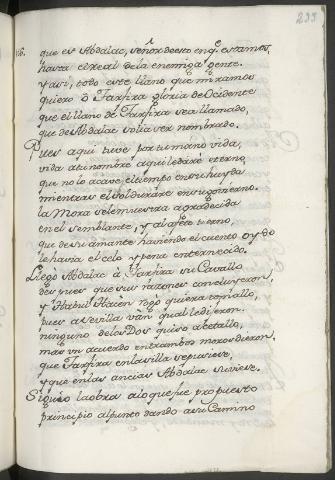 233
que es Abdalac, señor de esto enq.e estamos,
hasta el real dela enemiga gente.
y assi, todo este llano que miramos
quiero ô Tarfira gloria de Ocidente
que el llano de Tarfira sea llamado,
que de Abdalac solia ser nombrado.
Pues aqui tuve por tu mano vida,
vida a tu nombre aqui le dare eterno
que no lo acave el tiempo en su huyda
mientras el Sol durâre en su govierno.
la Mora se le muestra agradecida
en el semblante, y al afecto tierno,
que de su amante haviendo el cuento oydo
le havia el celo y pena enternecido.
Llegó Abdalac à Tarfira su Cavallo
despues que sus razones concluyeron,
y Habul Hacèn rogò quiera tomallo,
pues a Sevilla vàn qual le dijeron.
ninguno delos Dos quiso acetallo,
mas un acuerdo entrambos moros dieron.
que Tarfira en la silla se pusiese,
y que en las ancias Abdalac subiese.
Siguese la obra a lo que fue propuesto
principio al punto dando a su Camino